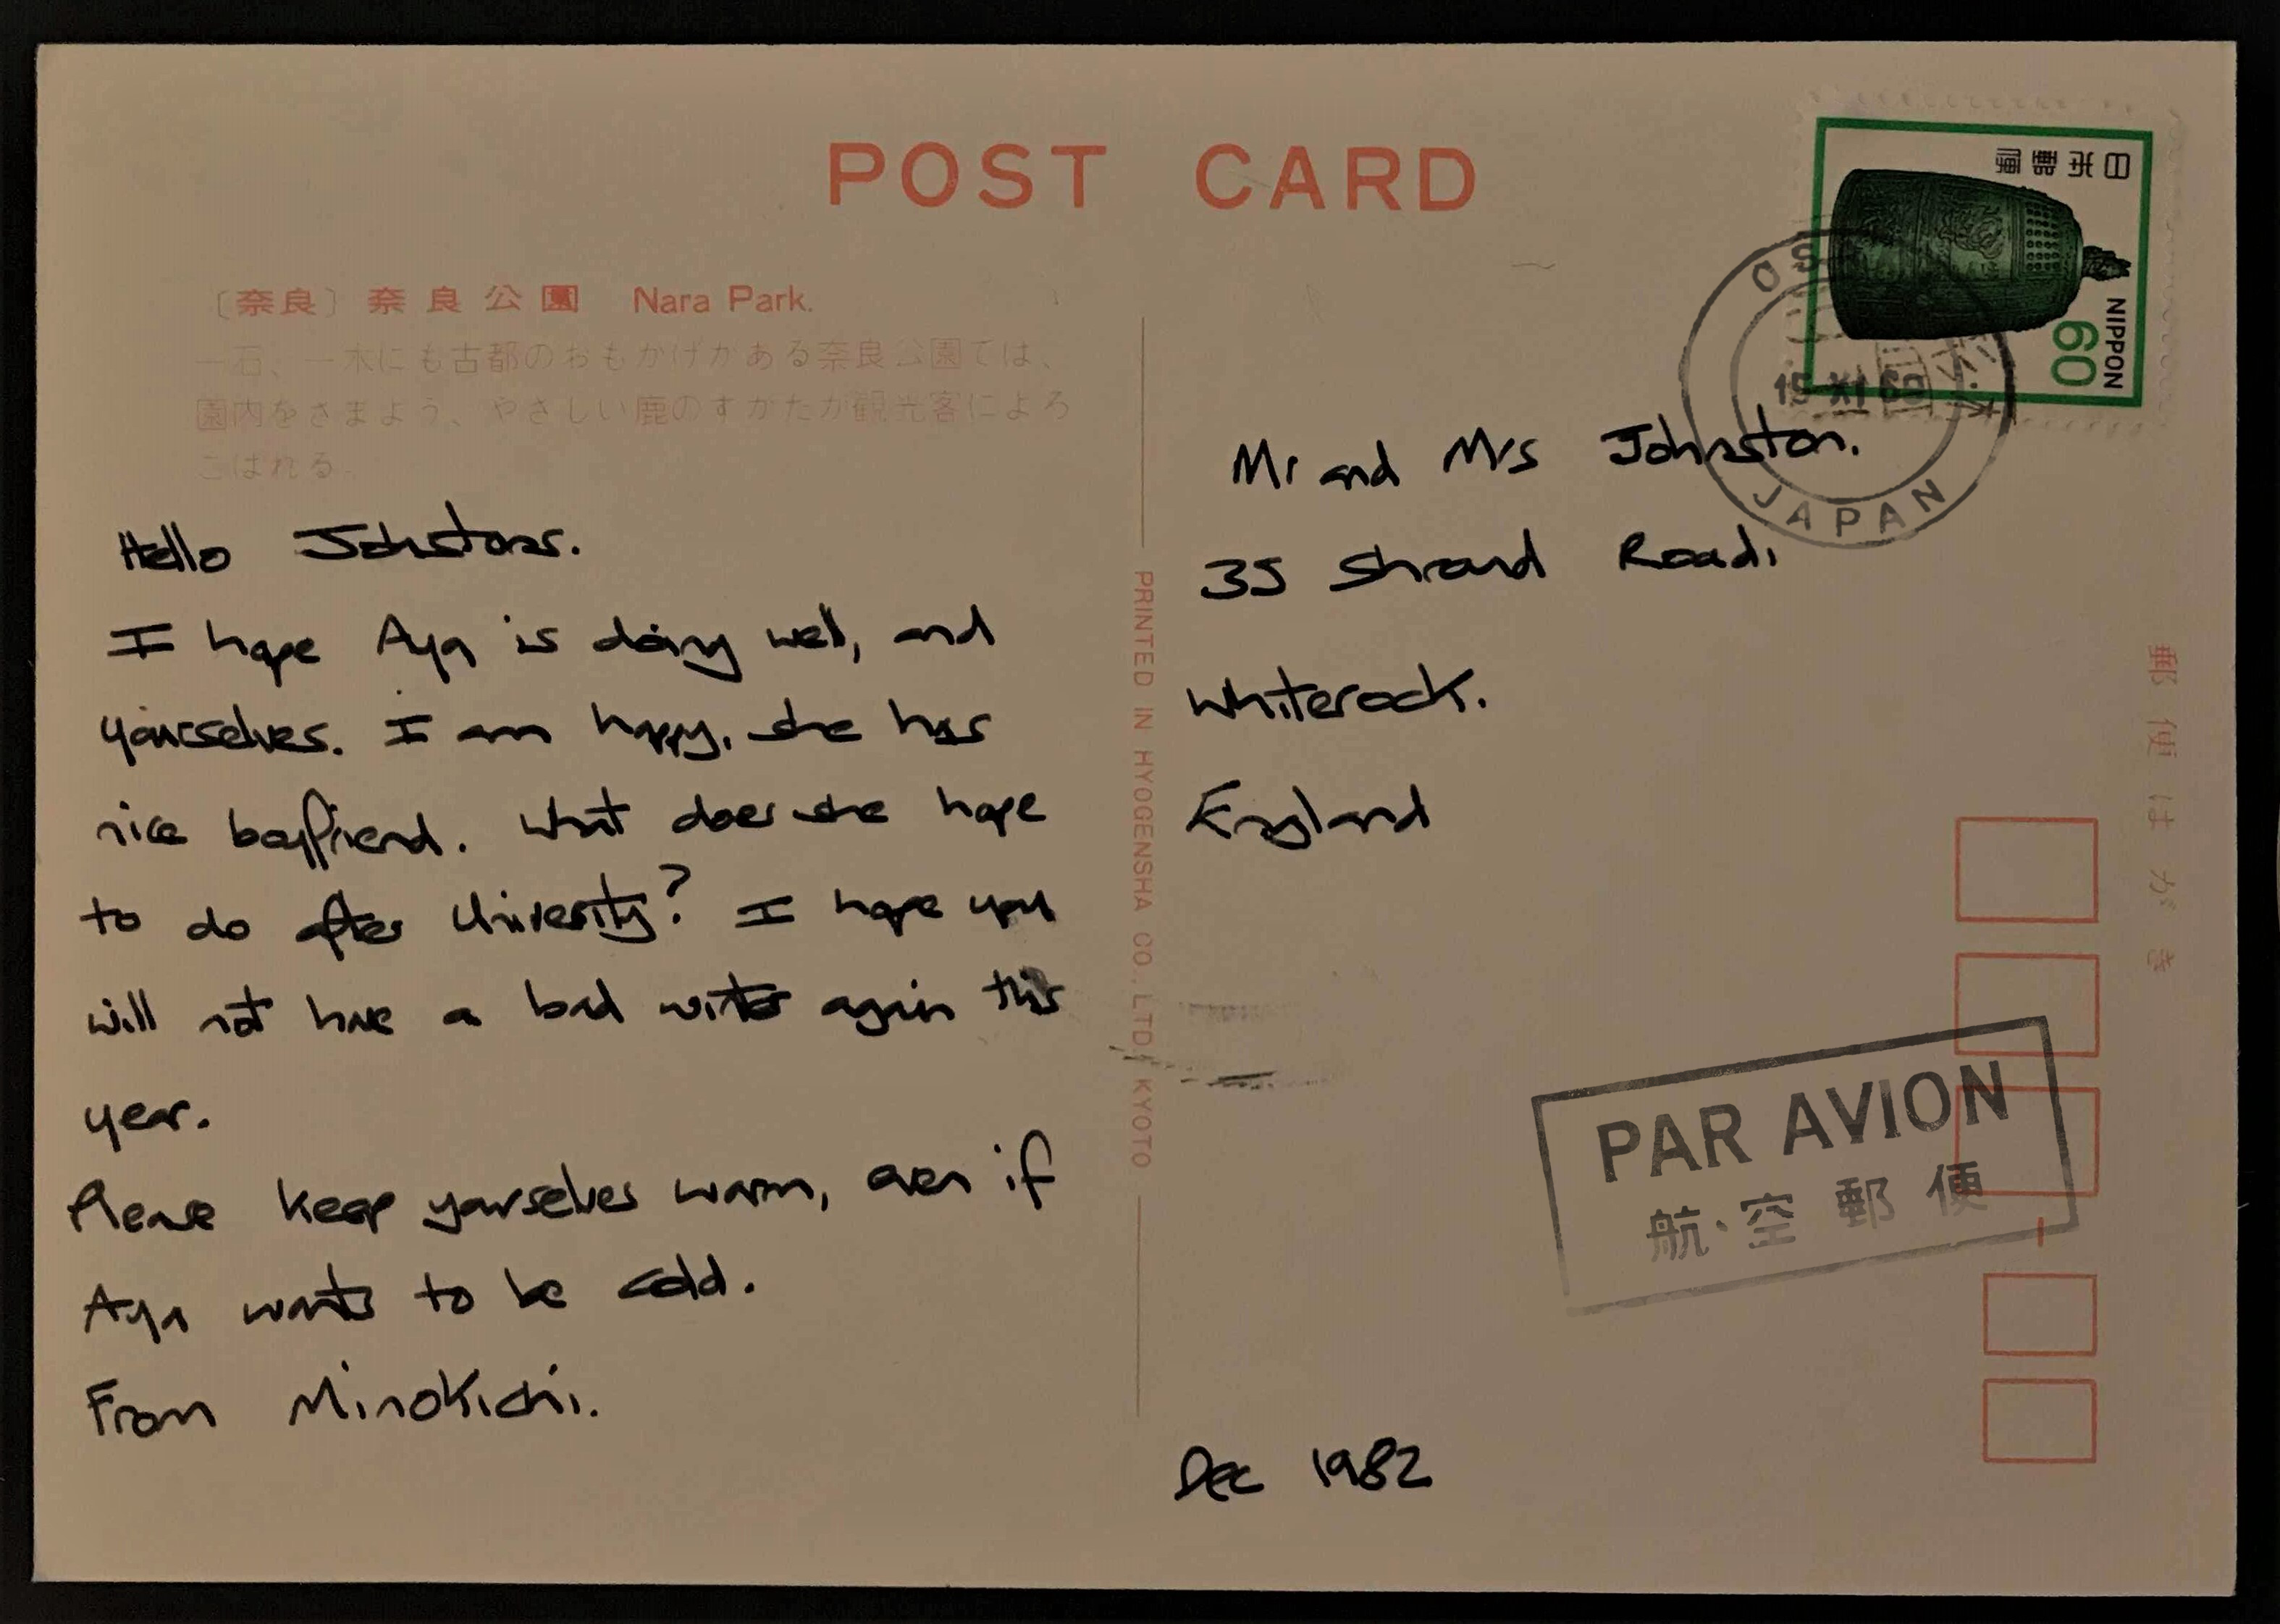 POST CARD
日本郵便
NIPPON
60
JAPAN
〔奈良〕奈良公園 Nara Park.
一石、一木にも古都のおもかげがある奈良公園では、
園内をさまよう、やさしい鹿のすがたが観光客によろ
こばれる。
Hello Johnstons.
I hope Aya is doing well, and
yourselves. I am happy, she has
nice boyfriend. What does she hope
to do after Univerity? I hope you
will not have a bad winter again this
year.
Please keep yourselves warm, even if
Aya wants to be cold.
From Minokichi.
PRINTED IN HYOGENSHA CO., LTD, KYOTO
Mr and Mrs Johnston.
35 Strand Road.
Whiterock.
England
郵便はがき
PAR AVION
航空郵便
Dec 1982